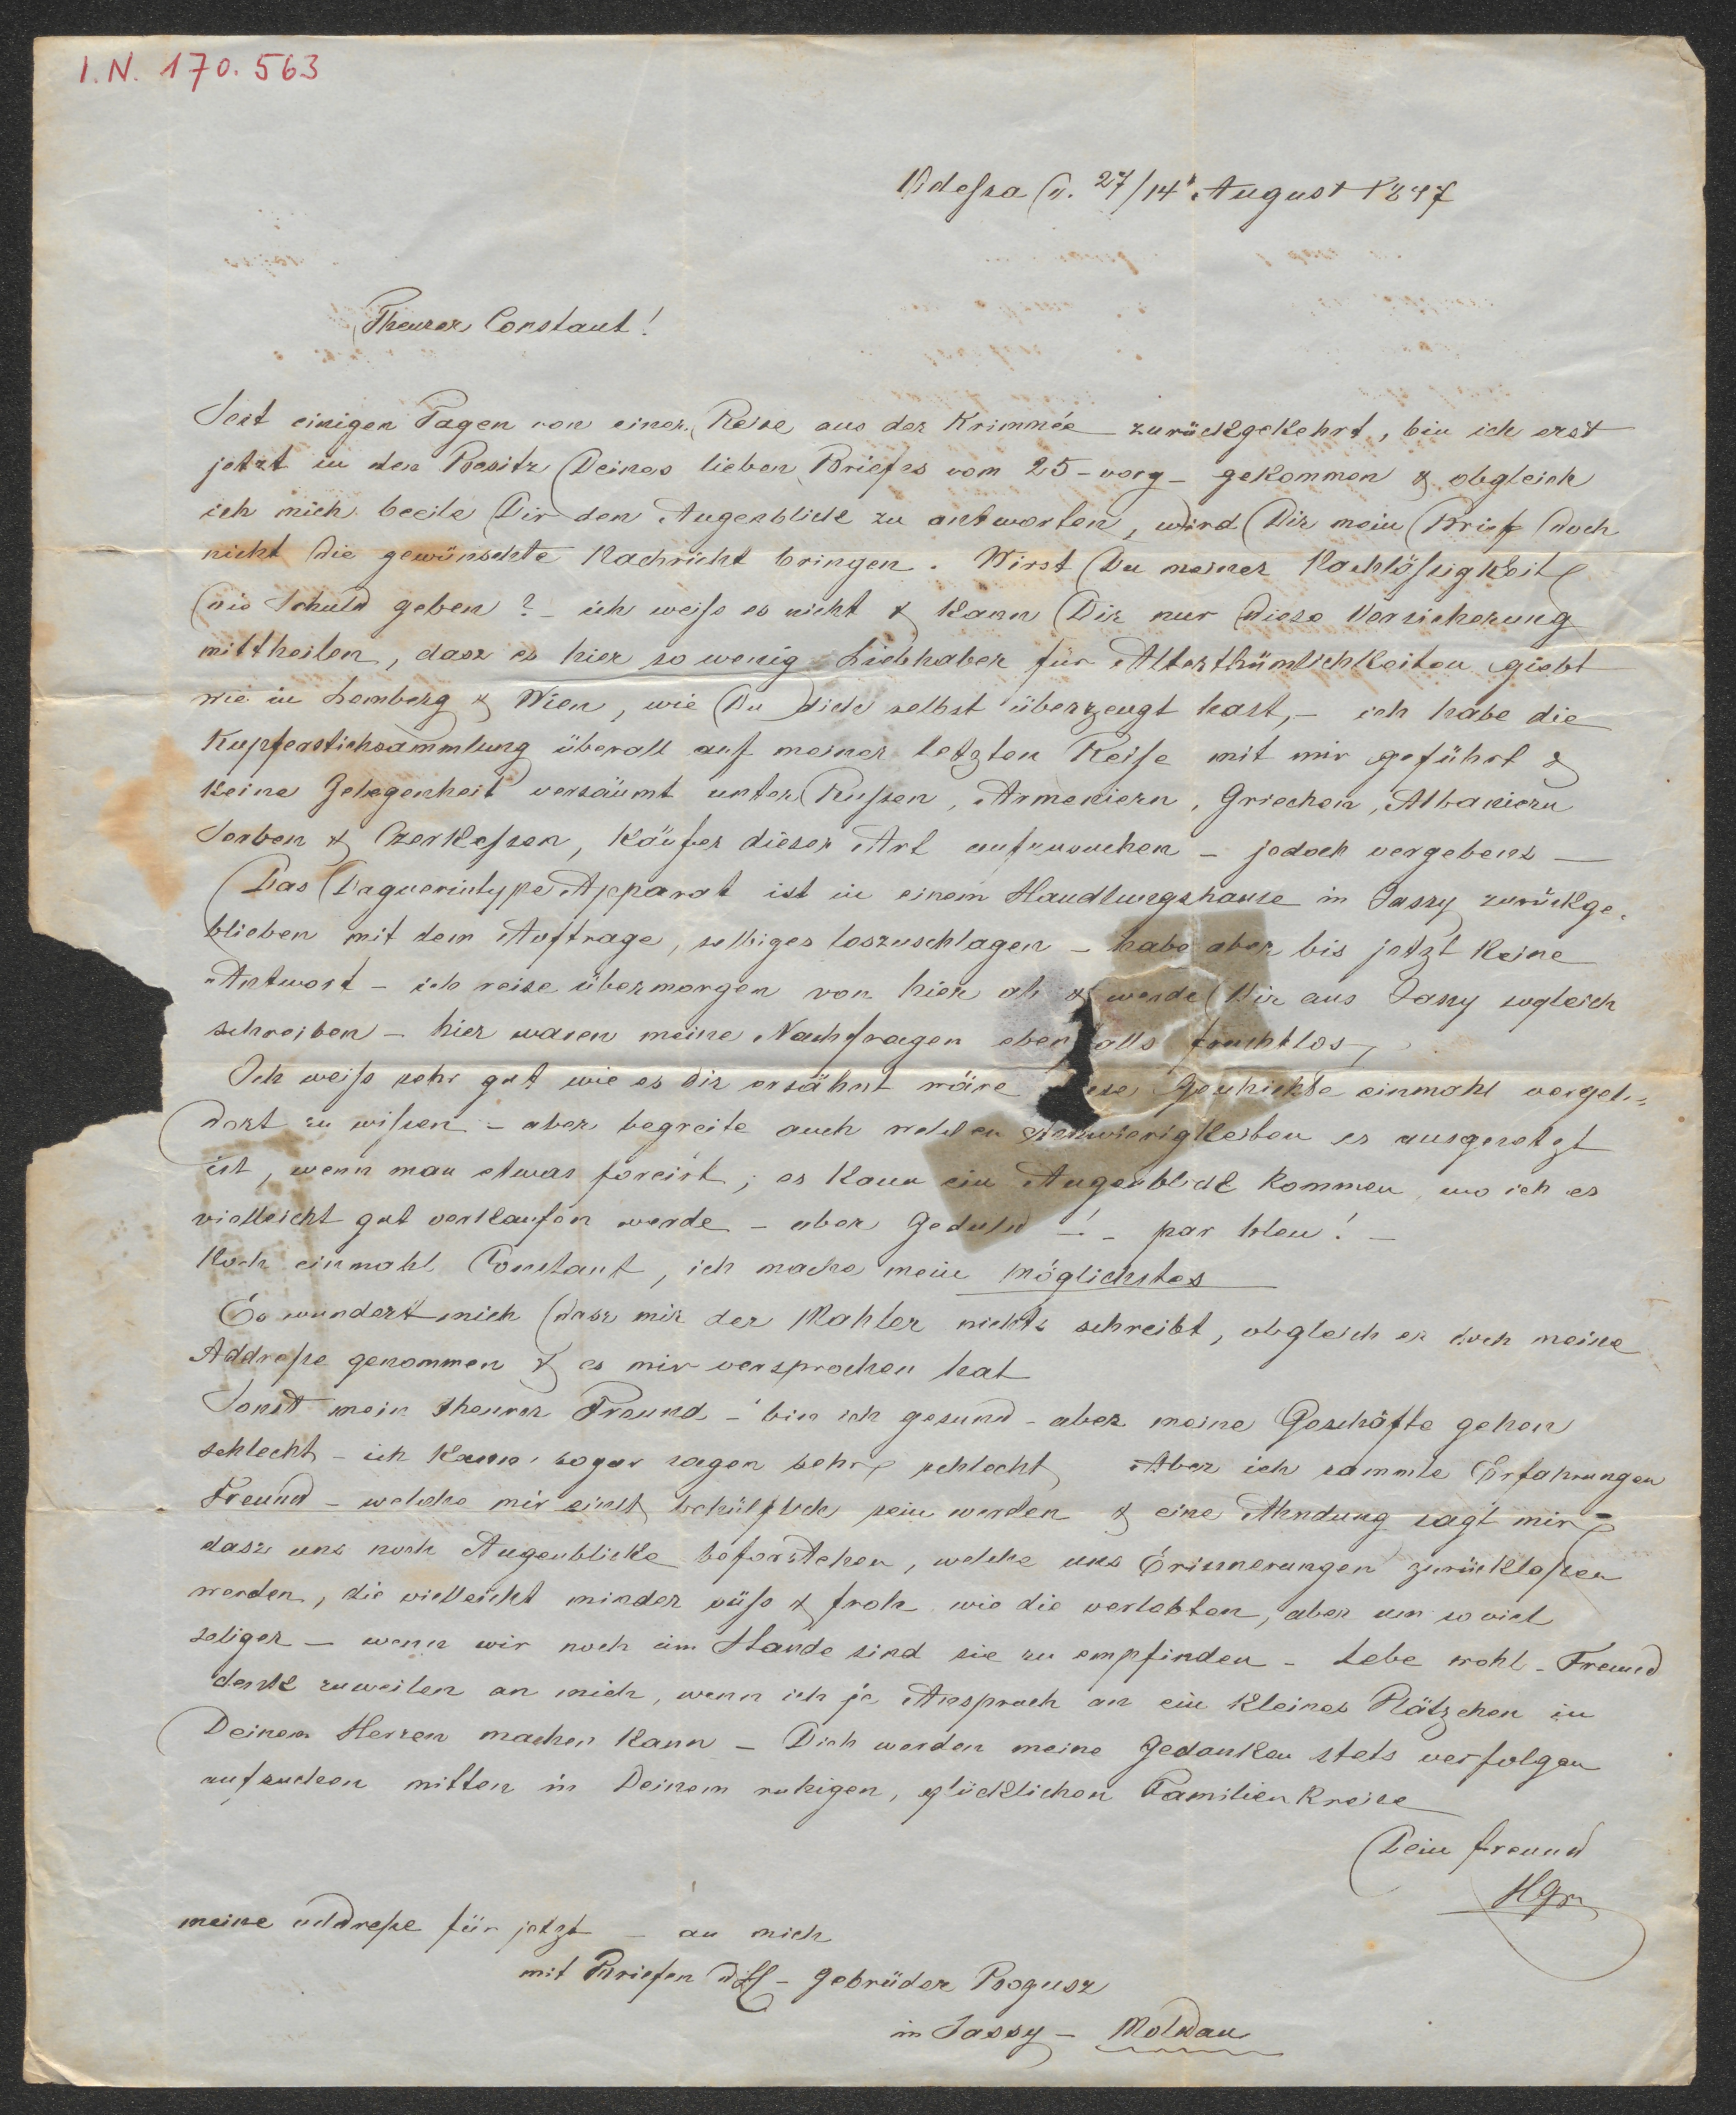 I.N. 170.563
Odessa d. 27/14 August 1847
Theurer Constant!
Seit einigen Tagen von einer Reise aus der Krimmée zurückgekehrt, bin ich erst
jetzt in den Besitz Deines lieben Briefes vom 25 - vorg - gekommen & obgleich
ich mich beeile Dir den Augenblick zu antworten, wird Dir mein Brief doch
nicht die gewünschte Nachricht bringen. Wirst Du meiner Nachläßigkeit
die Schuld geben? - ich weiß es nicht & kann Dir nur diese Versicherung
mittheilen, dasz es hier so wenig Liebhaber für Alterthümlichkeiten giebt
wie in Lemberg & Wien, wie Du dich selbst überzeugt hast, - ich habe die
Kupferstichsammlung überall auf meiner letzten Reise mit mir geführt &
keine Gelegenheit versäumt unter Rußen, Armeniern, Griechen, Albaniern
Serben & Czerkeßen, Käufer dieser Art aufzusuchen - jedoch vergebens —
Das Daguerintype Apparat ist in einem Handlungshause in Jassy zurückge-
blieben mit dem Auftrage, selbiges loszuschlagen - habe aber bis jetzt keine
Antwort - ich reise übermorgen von hier ab & werde Dir aus Jassy sogleich
schreiben - hier waren meine Nachfragen ebenfalls fruchtlos -
Ich weiß sehr gut wie es dir ersähnt wäre Geschichte einmahl
zu wißen - aber begreife auch welchen Schwierigkeiten es ausgesetzt
ist, wenn man etwas forcirt; es kann ein Augenblick kommen, wo ich es
vielleicht gut verkaufen werde - aber Geduld - ! - par bleu! -
Noch einmahl Constant, ich mache mein möglichstes
Es wundert mich dasz mir der Mahler nichts schreibt, obgleich er doch meine
Addreße genommen & es mir versprochen hat
Sonst mein theurer Freund - bin ich gesund - aber meine Geschäfte gehen
schlecht - ich kann sogar sagen sehr schlecht, Aber ich sammle Erfahrungen
Freund - welche mir einst behülflich sein werden & eine Ahndung sagt mir
dasz uns noch Augenblicke beforstehen, welche uns Erinnerungen zurücklaßen
werden, die vielleicht minder süß & froh wie die verlebten, aber um so viel
seliger - wenn wir noch im Stande sind sie zu empfinden - Lebe wohl - Freund
denke zuweilen an mich, wenn ich je Anspruch an ein kleines Plätzchen in
Deinem Herzen machen kann - Dich werden meine Gedanken stets verfolgen
aufsuchen mitten in Deinem ruhigen, glücklichen Familien Kreise
Dein Freund
meine addreße für jetzt - an mich
mit Briefen Gebrüder Bogusz
in Jassy - Moldau